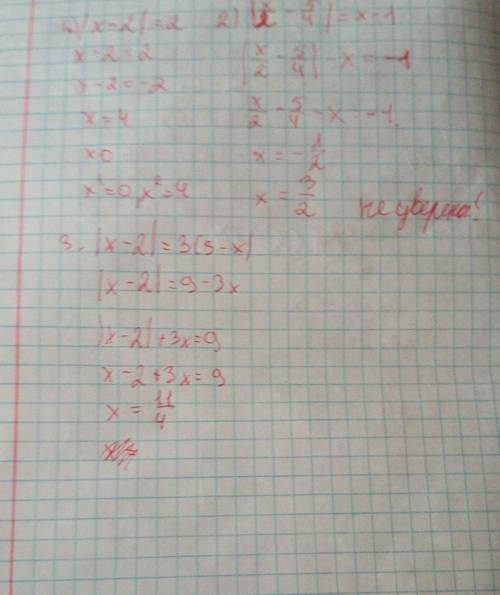 1) |x-2|=2
x-2=2
x-2=-2
x=4
x0
x¹=0, x²=4
2) |x/2 - 5/4| = x-1
|x/2 - 5/4| - x = -1
x/2 - 5/4 - x -1.
x = -1/2
x = 3/2
не уверена!
3. |x-2|=3(3-x|
|x-2|=9-3x
|x-2|+3x=9
x-2+3x=9
x = 11/4